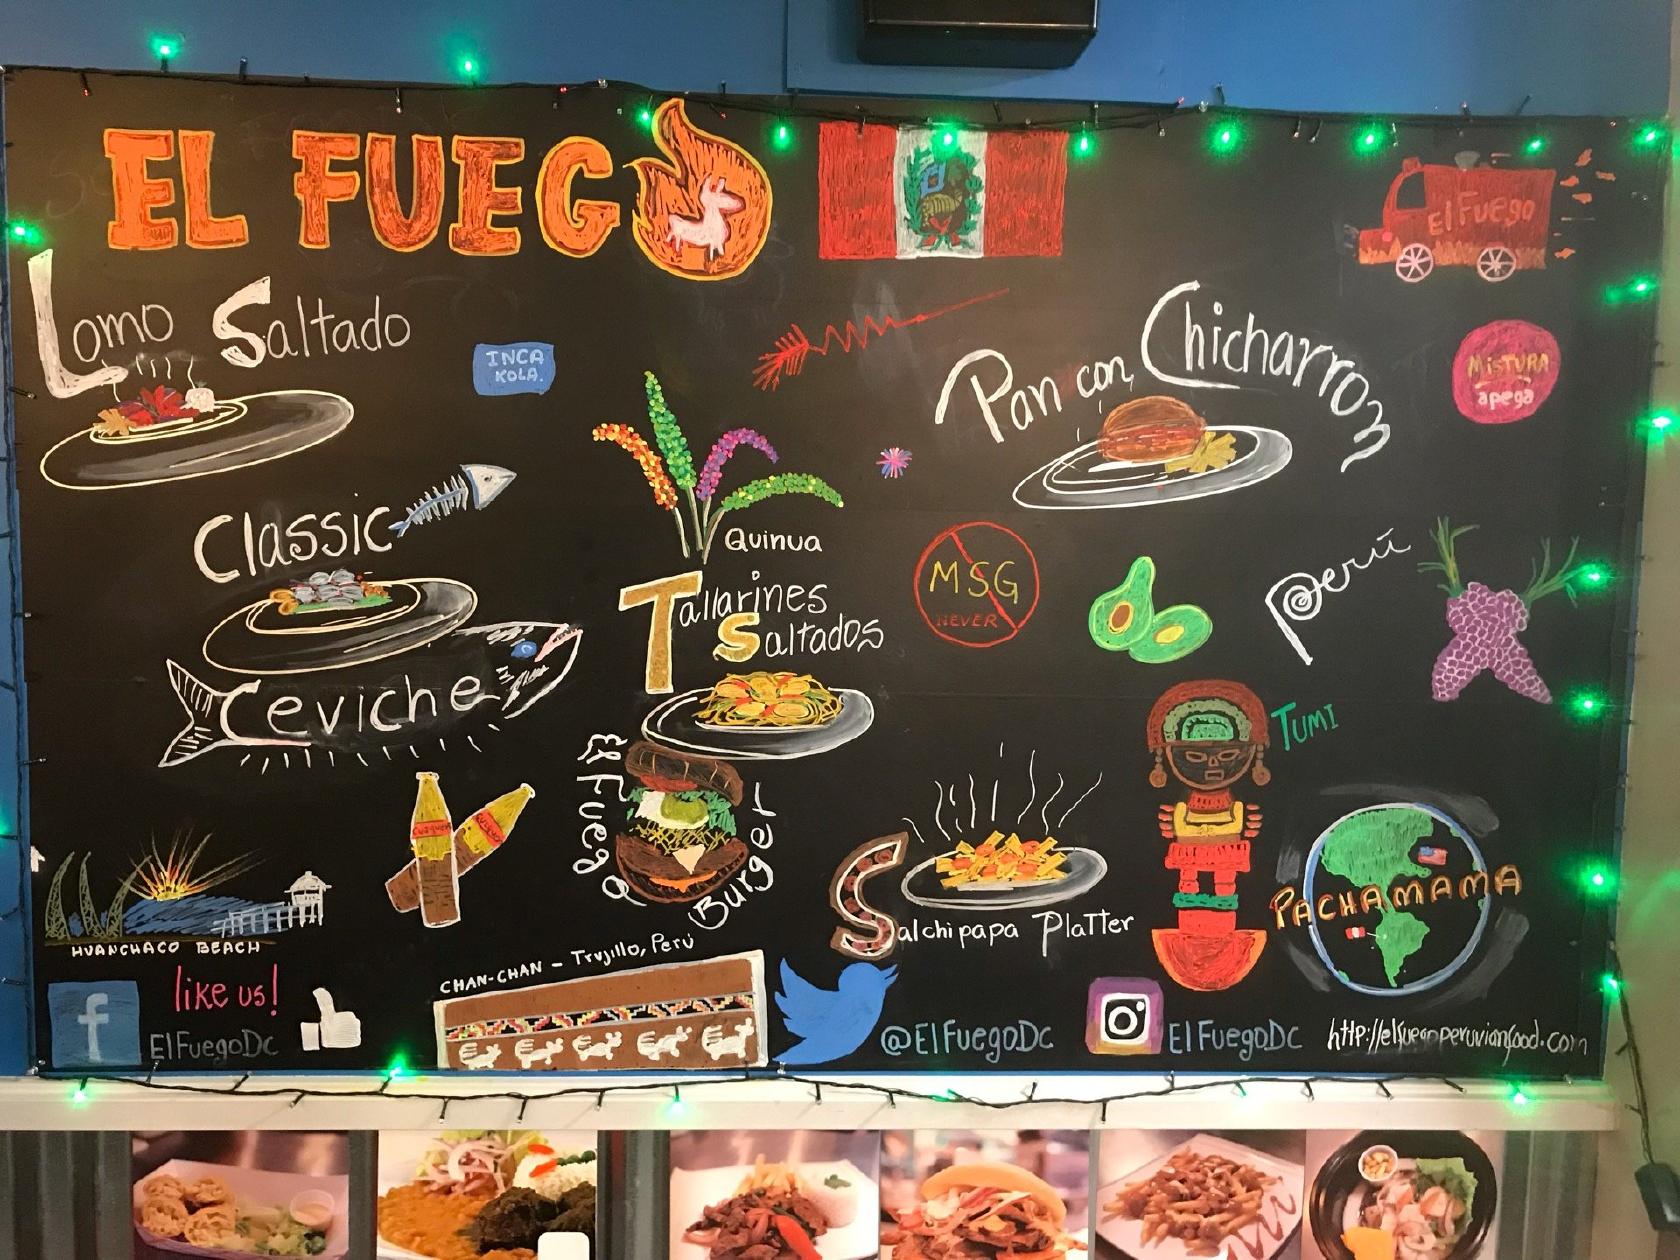 EL FUEGO
El Fuego
Lomo Saltado
INCA
KOLA.
Pan con Chicharron
MiSTURA
apega
Classic
Ceviche
Quinua
Tallarines
Saltados
MSG
NEVER
Perú
TUMI
El Fuego
Burger
Salchipapa Platter
PACHAMAMA
HUANCHACO BEACH
CHAN-CHAN - Trujillo, Perú
like us!
f
ElFuegoDc
@ElFuegoDc
ElFuegoDc
http://elfuegoperuvianfood.com